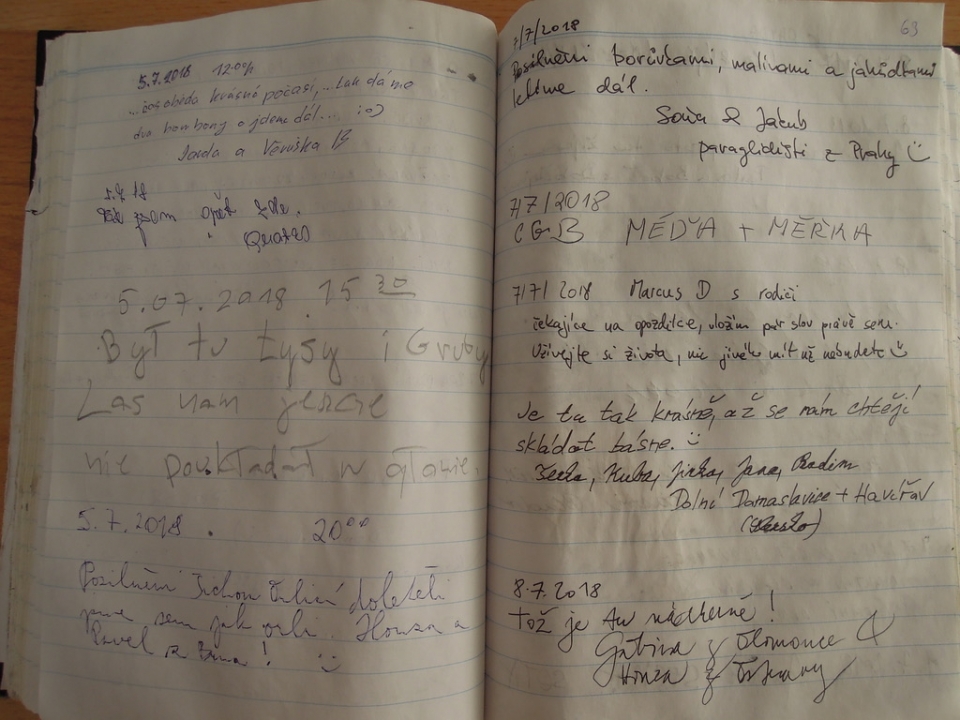 5.7.2018 12:00h
krásné počasí, ... tak dáme
dva bombony a jdeme dál... :o)
Jarda a Věruška
5.7.18
jsem opět zde.
5.07.2018 15 30
Był tu Łysy i Gruby
Las nam jeszcze
nie poukładał w głowie.
5.7.2018. 20 00
Posilněni doletěli
jsme sem jak orli. Honza a
Pavel z Brna! :)
63
7/7/2018
Posilněni borůvkami, malinami a jahůdkami
jdeme dál.
Soňa & Jakub
paraglidisti z Prahy :)
7/7/2018
CGB MÉĎA + MĚŘKA
7/7/2018 Marcus D s rodiči
čekajíce na opozdilce, vložím pár slov právě sem.
Užívejte si života, nic jiného mít už nebudete :)
Je tu tak krásně, až se nám chtějí
skládat básně. :)
Kuba, Jirka, Jana, Radim
Dolní Domaslavice + Havířov
8.7.2018
Tož je tu nádherně!
Gabina z Olomouce &
Honza z Ostravy